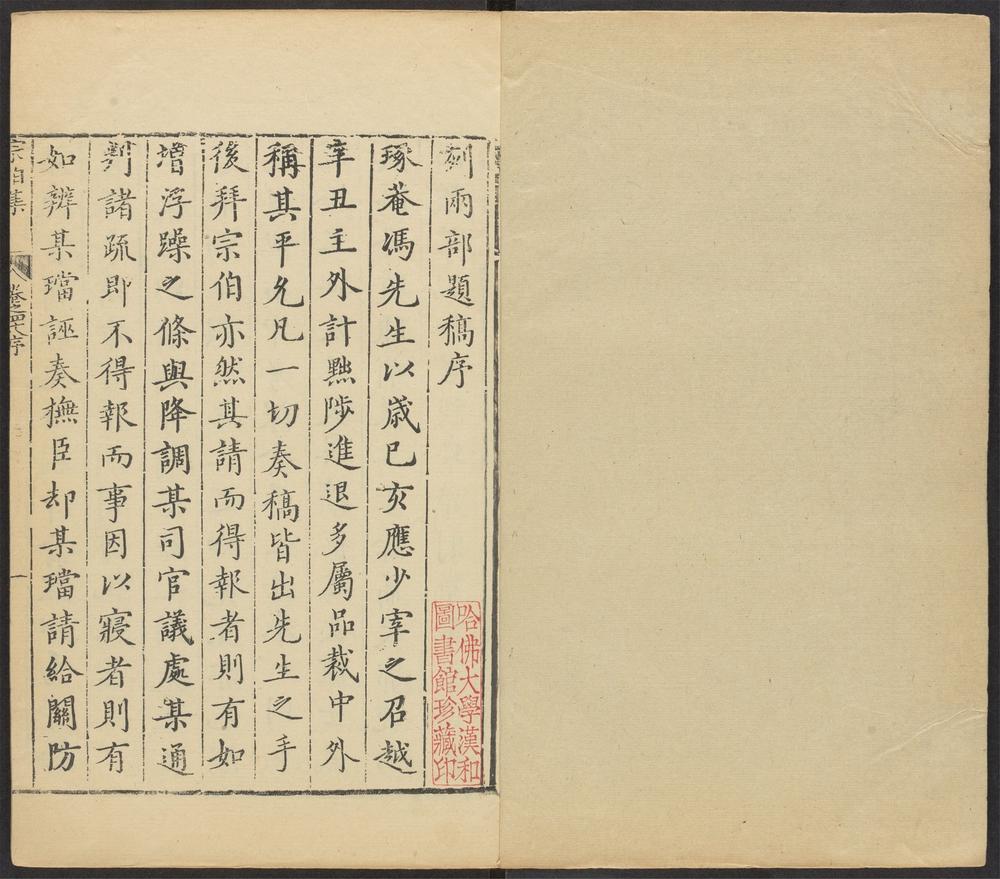 刻兩部題稿序
琢菴馮先生以歲己亥應少宰之召越
辛丑主外計黜陟進退多屬品裁中外
稱其平允凡一切奏稿皆出先生之手
後拜宗伯亦然其請而得報者則有如
增浮躁之條與降調某司官議處某通
判諸疏即不得報而事因以寢者則有
如辨某璫誣奏撫臣却某璫請給關防
宗伯集
卷之四十八序
一
哈佛大學漢和
圖書館珍藏印